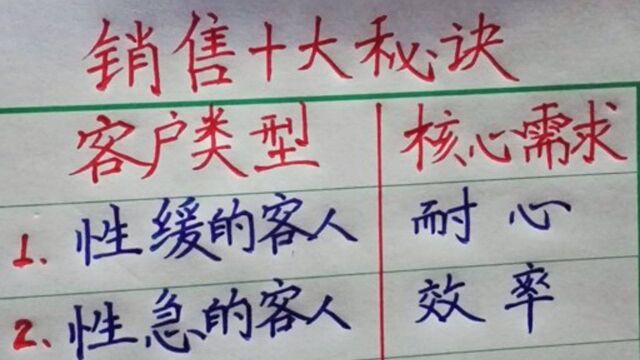 销售十大秘诀
客户类型 核心需求
1. 性缓的客人 耐心
2. 性急的客人 效率